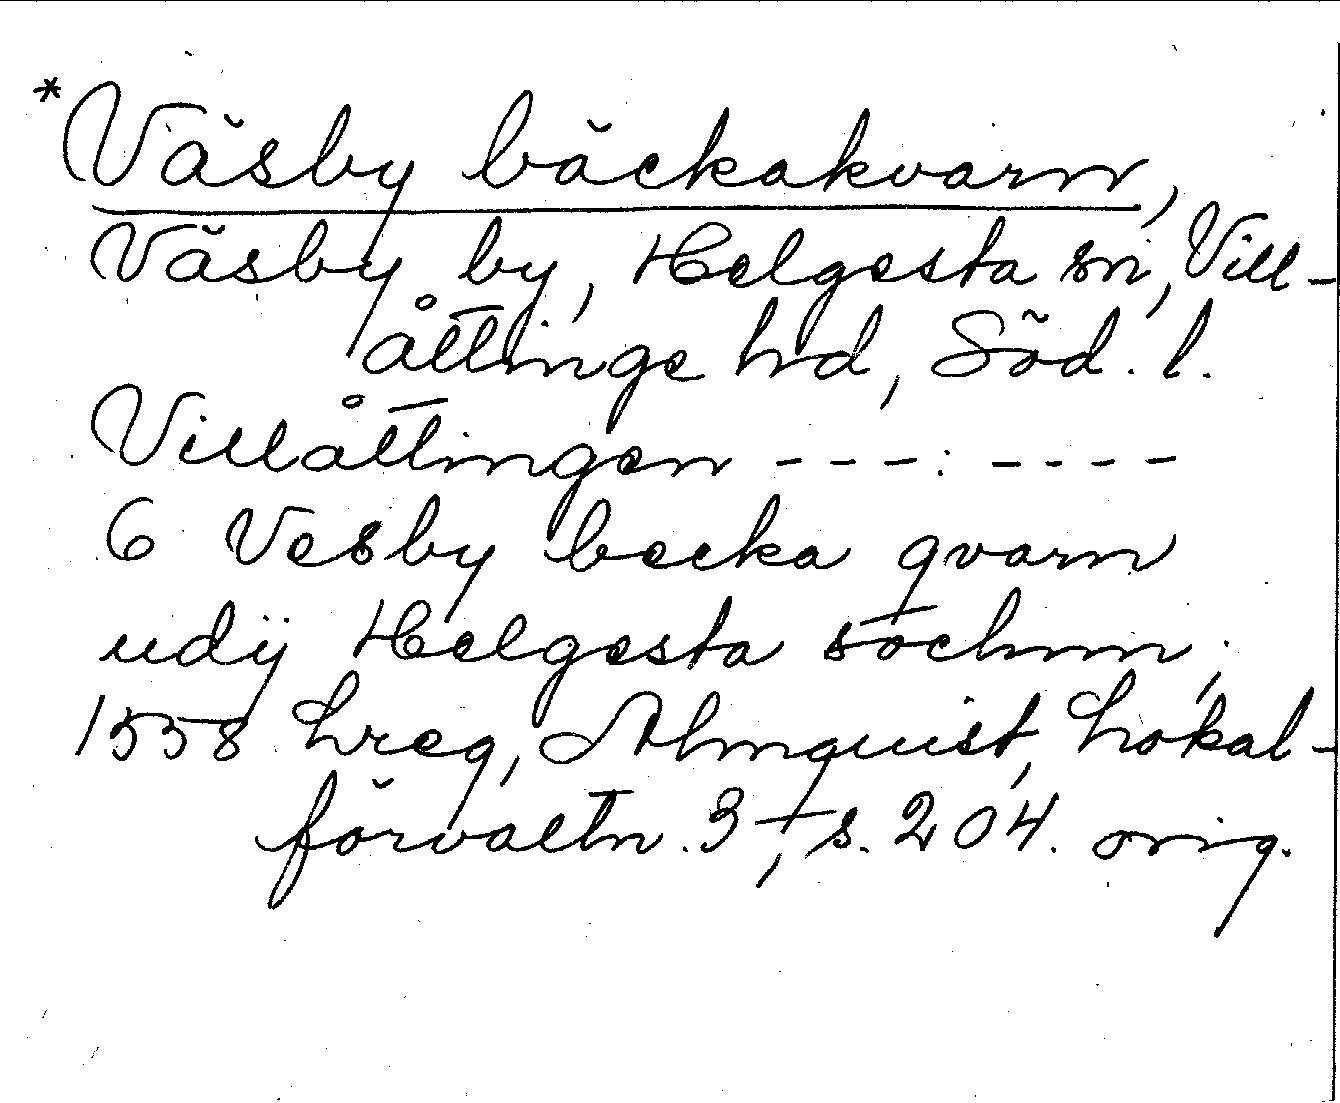 *Väsby bäckakvarn,
Väsby by, Helgesta sn, Vill-
åttinge hd, Söd. l.
Villåttingen - - - : - - - -
6 Vesby becka qvarn
udij Helgesta sochnn;
1558 Lreg, Almquist, Lokal-
förvaltn. 3, s. 204. orig.